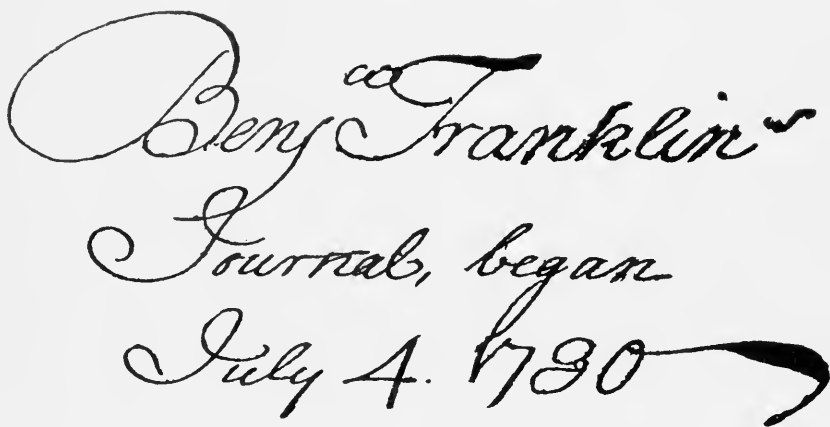 Benj Franklin's
Journal, began
July 4. 1730